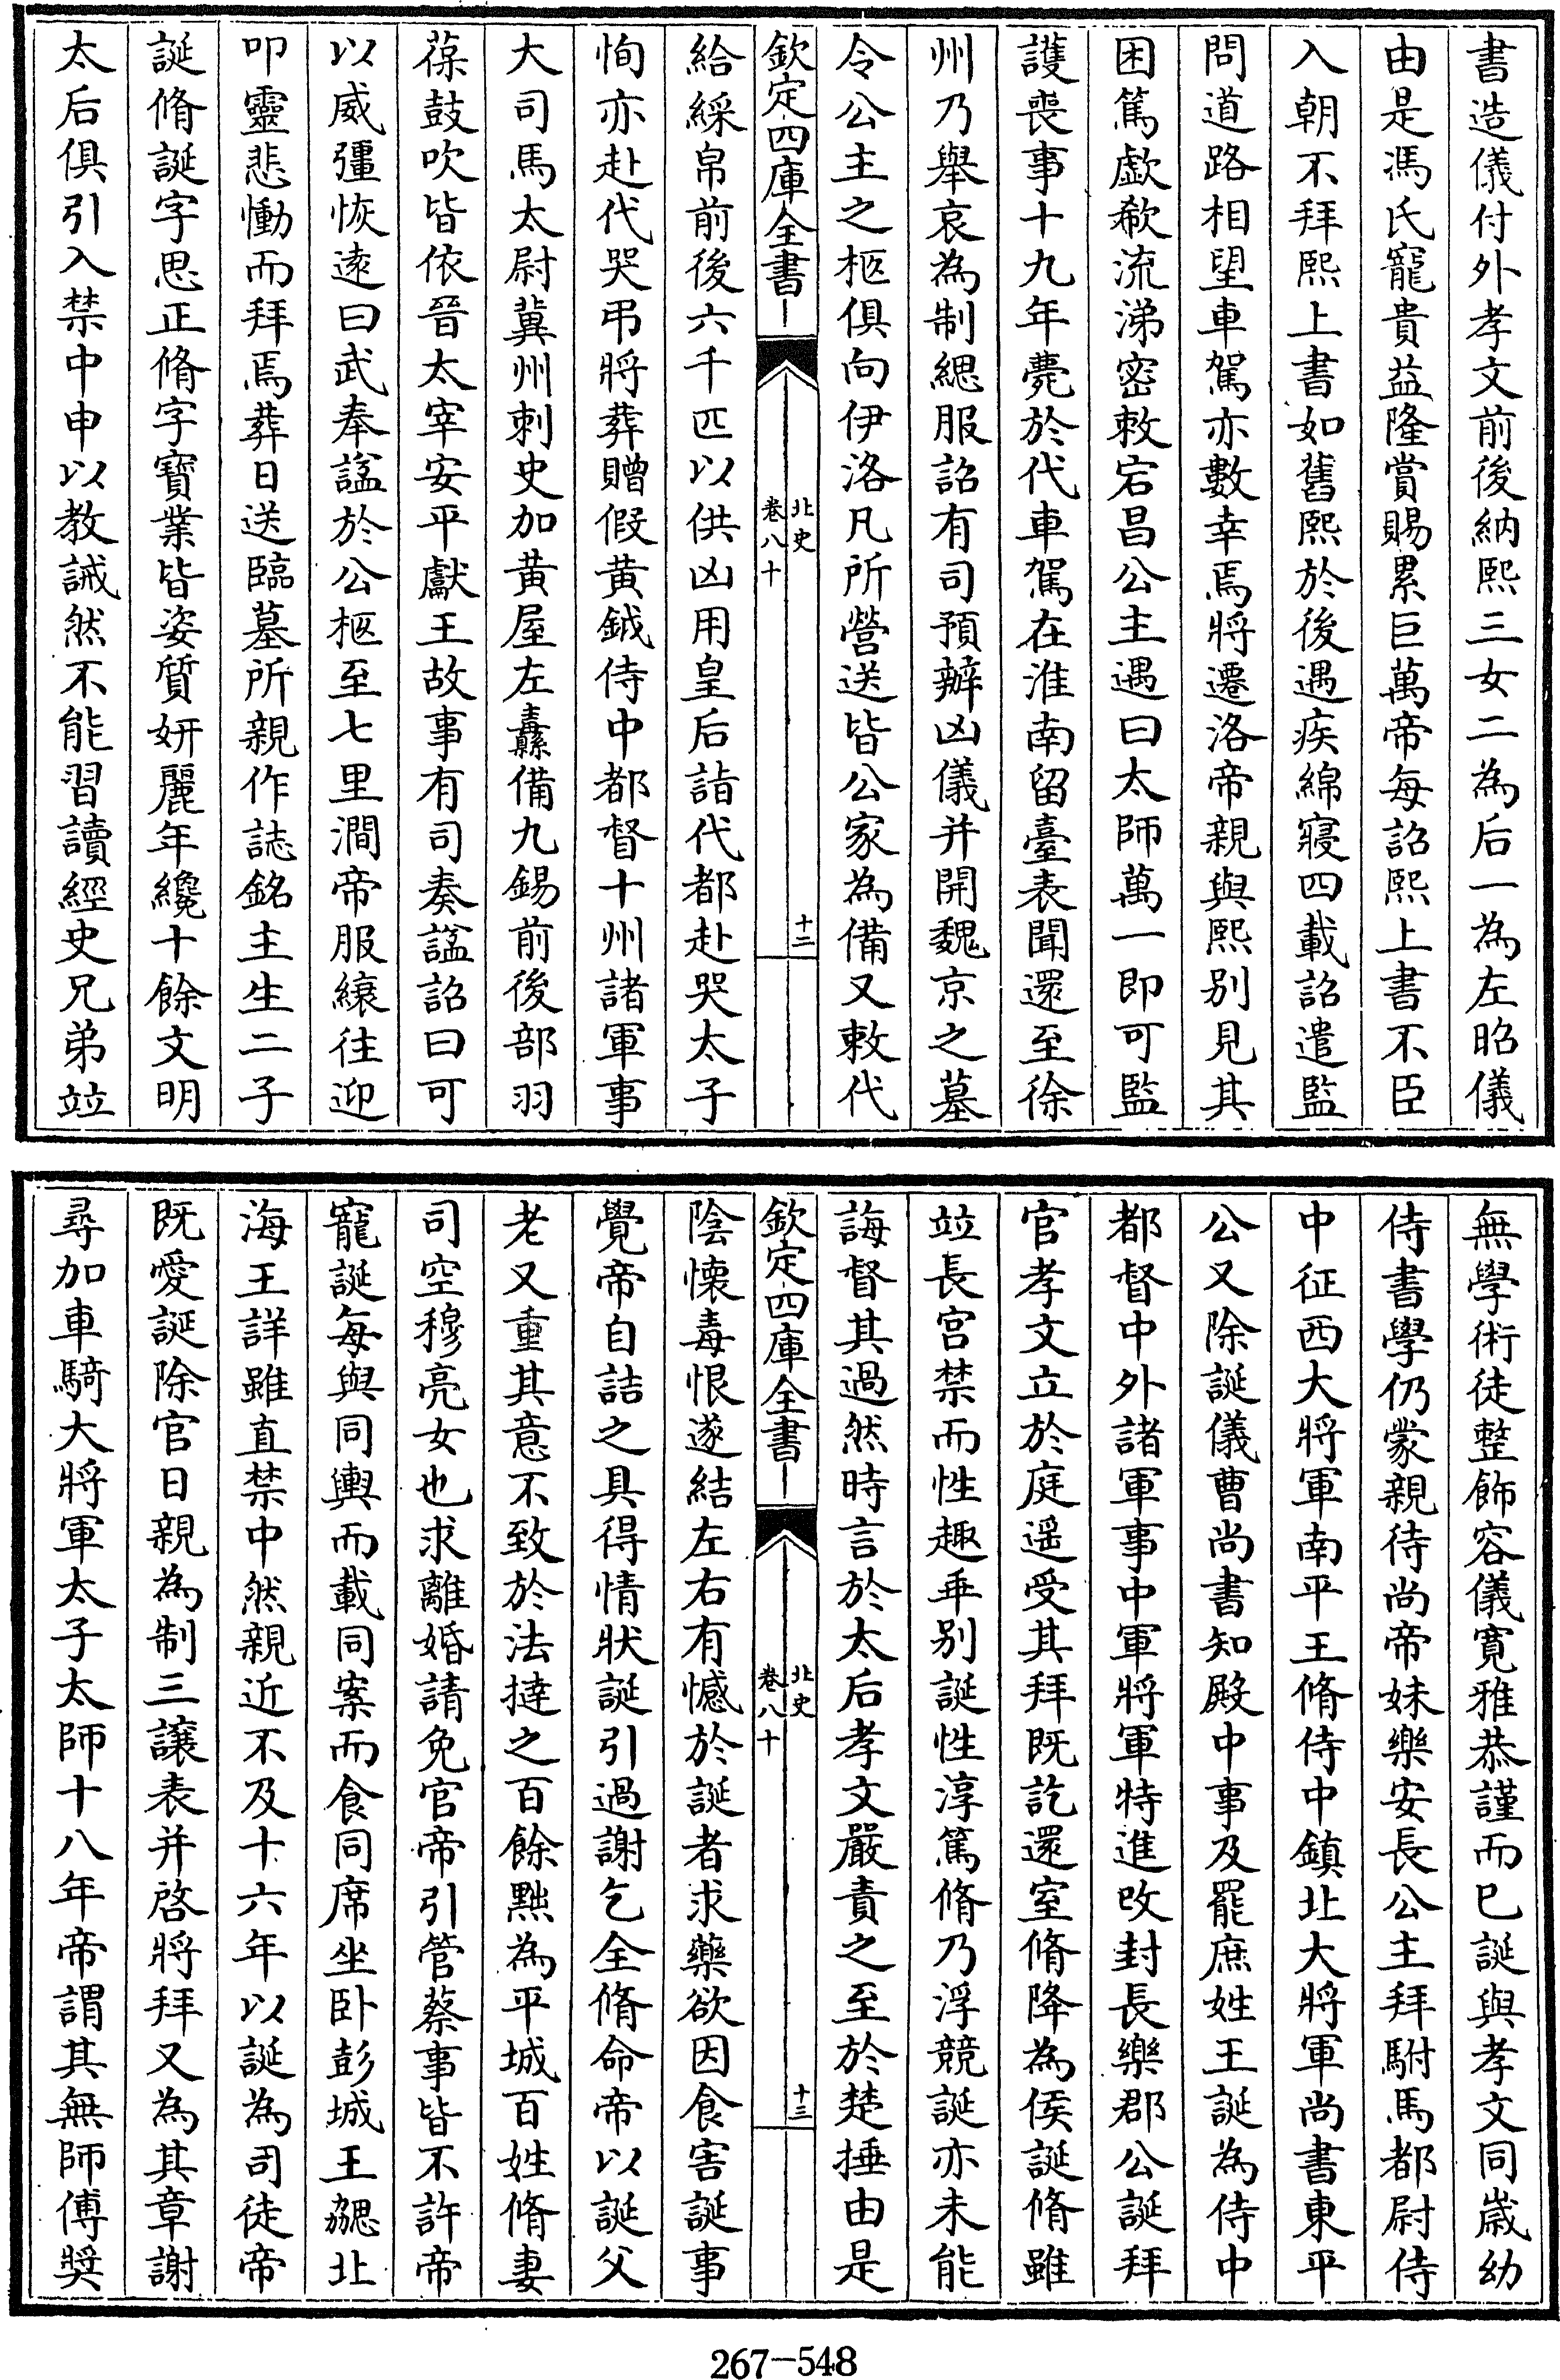 書造儀付外孝文前後納熙三女二為后一為左昭儀
由是馮氏寵貴益隆賞賜累巨萬帝每詔熙上書不臣
入朝不拜熙上書如舊熙於後遇疾綿寢四載詔遣監
問道路相望車駕亦數幸焉將遷洛帝親與熙别見其
困篤歔欷流涕密敕宕昌公主遇曰太師萬一即可監
護喪事十九年薨於代車駕在淮南留臺表聞還至徐
州乃舉哀為制緦服詔有司預辦凶儀并開魏京之墓
令公主之柩俱向伊洛凡所營送皆公家為備又敕代
欽定四庫全書
北史
卷八十
十二
給綵帛前後六千匹以供凶用皇后詣代都赴哭太子
恂亦赴代哭弔將葬贈假黄鉞侍中都督十州諸軍事
大司馬太尉冀州刺史加黄屋左纛備九錫前後部羽
葆鼓吹皆依晉太宰安平獻王故事有司奏諡詔曰可
以威彊恢遠曰武奉諡於公柩至七里澗帝服縗往迎
叩靈悲慟而拜焉葬日送臨墓所親作誌銘主生二子
誕脩誕字思正脩字寶業皆姿質妍麗年纔十餘文明
太后俱引入禁中申以教誡然不能習讀經史兄弟竝
無學術徒整飾容儀寛雅恭謹而已誕與孝文同歲幼
侍書學仍蒙親待尚帝妹樂安長公主拜駙馬都尉侍
中征西大將軍南平王脩侍中鎮北大將軍尚書東平
公又除誕儀曹尚書知殿中事及罷庶姓王誕為侍中
都督中外諸軍事中軍將軍特進改封長樂郡公誕拜
官孝文立於庭遥受其拜既訖還室脩降為侯誕脩雖
竝長宫禁而性趣乖别誕性淳篤脩乃浮競誕亦未能
誨督其過然時言於太后孝文嚴責之至於楚捶由是
欽定四庫全書
北史
卷八十
十三
陰懐毒恨遂結左右有憾於誕者求藥欲因食害誕事
覺帝自詰之具得情狀誕引過謝乞全脩命帝以誕父
老又重其意不致於法撻之百餘黜為平城百姓脩妻
司空穆亮女也求離婚請免官帝引管蔡事皆不許帝
寵誕每與同輿而載同案而食同席坐卧彭城王勰北
海王詳雖直禁中然親近不及十六年以誕為司徒帝
既愛誕除官日親為制三讓表并啓將拜又為其章謝
尋加車騎大將軍太子太師十八年帝謂其無師傅奬
267-548